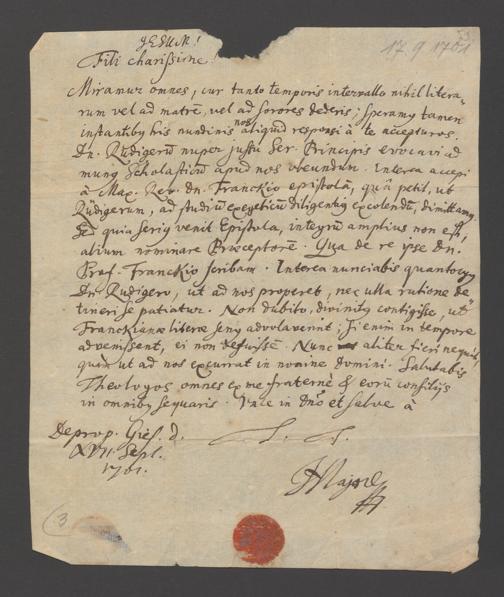 JESUM!
17. 9 1701
Fili charissime!
Miramur omnes, cur tanto temporis intervallo nihil litera-
rum vel ad matrē, vel ad sorores dederis; speramg tamen
instantibg his nundinis nos aliquid responsi à te accepturos.
Dn. Rüdigerū nuper jussu Ser. Principis evocavi ad
mung Scholasticū apud nos obeundum. Interea accepi
à Max. Rev. dn. Franckio epistolā, quâ petit, ut
Rüdigerum, ad studiū exegeticū diligentig excolendū, dimittamg.
Sed quia serig venit Epistola, integrū amplius non est,
alium nominare Præceptorē. Qua de re ipse dn.
Prof. Franckio scribam. Interea nunciabis quantocyg
Dn. Rüdigero, ut ad nos properet, nec ulla ratione de-
tineri se patiatur. Non dubito, divinitg contigisse, ut
Franckianæ literæ serig advolaverint; si enim in tempore
advenissent, ei non defuissē. Nunc aliter fieri nequit,
quam ut ad nos excurrat in nomine domini. Salutabis
Theologos omnes ex me fraternè & eorū consilijs
in omnibg sequaris. Vale in Dnō et salve à
Deprop. Gies. d.
XVII. Sept.
1701.
T. T.
JHMajo
3